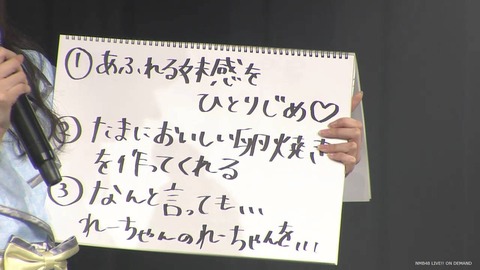 ① あふれる妹感を
ひとりじめ♡
② たまにおいしい卵焼き
を作ってくれる
③ なんと言っても…
れーちゃんのれーちゃんを…
NMB48 LIVE!! ON DEMAND